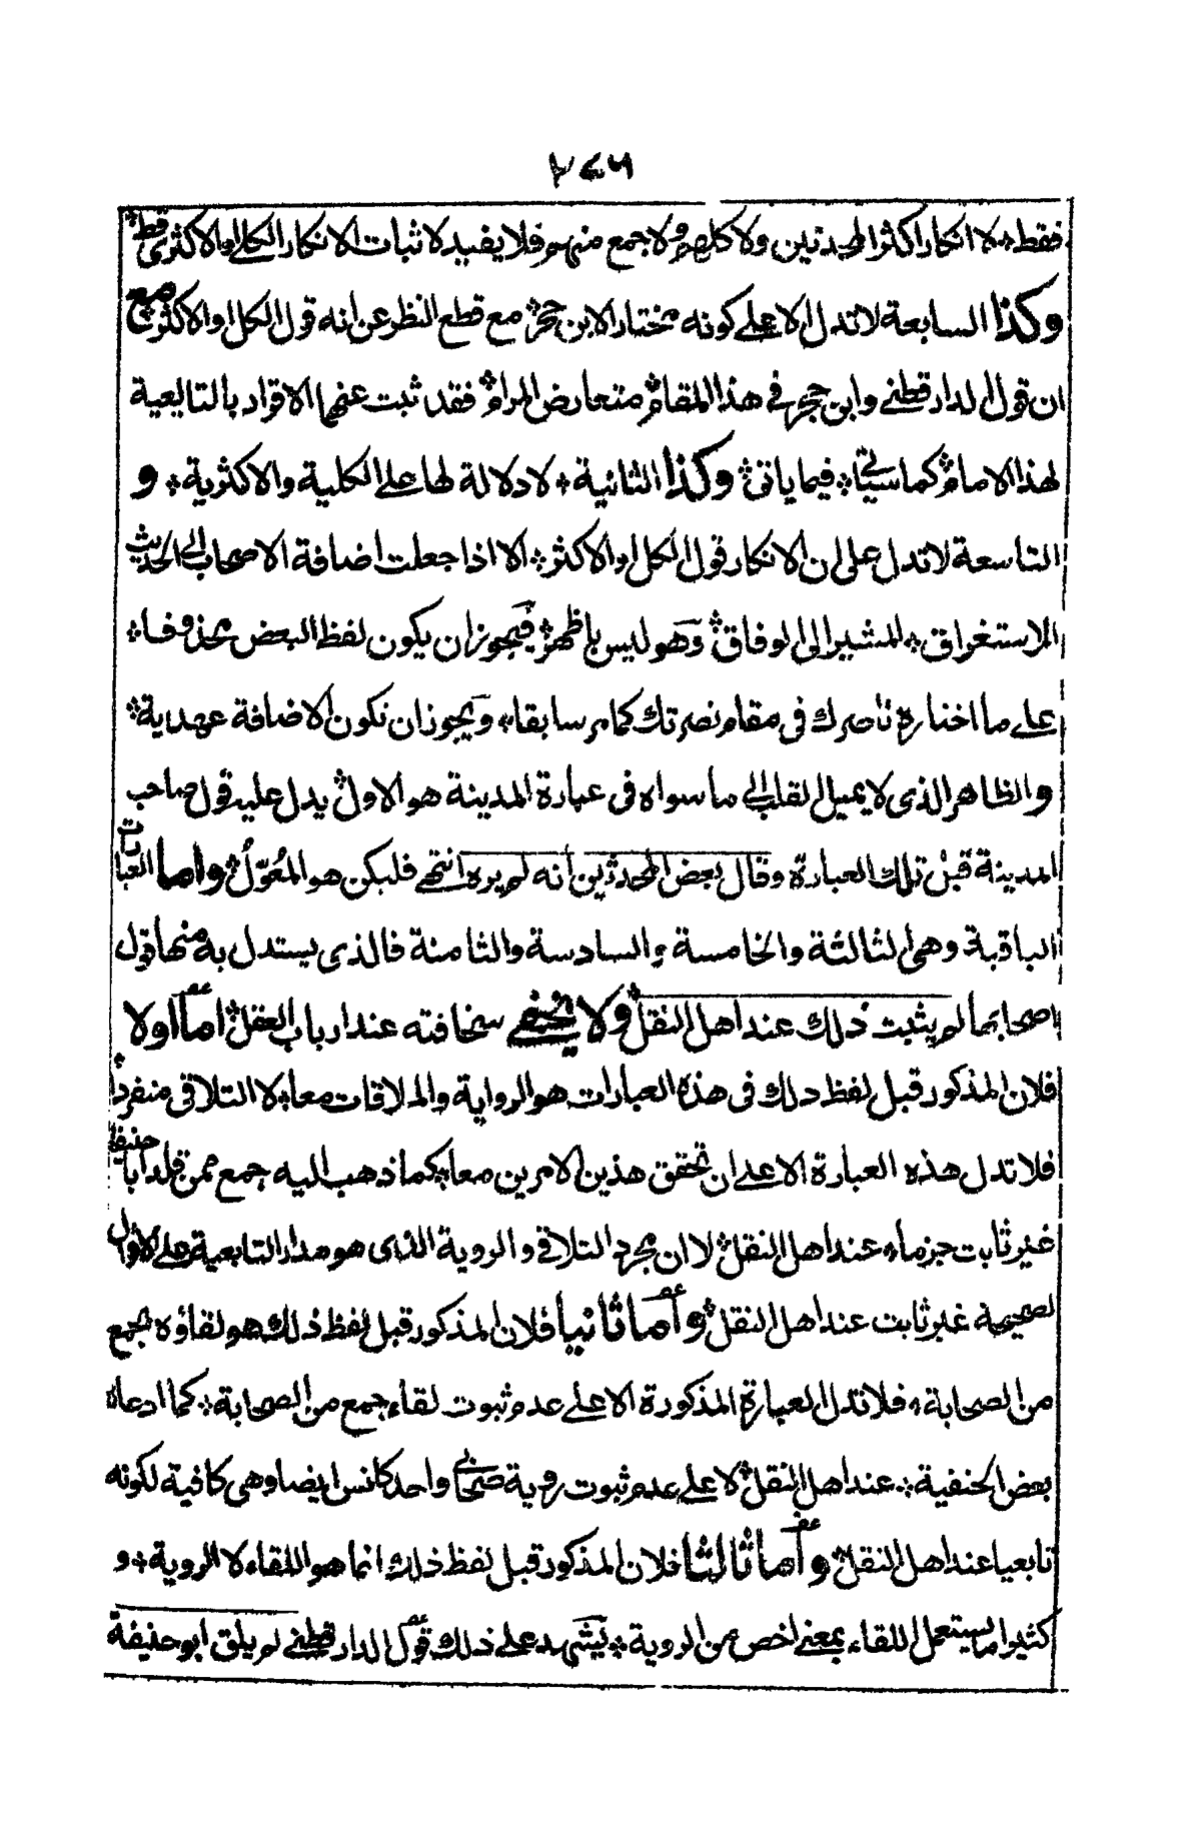 ٢٧٦
فقط * لا انكار اكثر المحدثين ولا كلهم ولا جمع منهم فلا يفيد لاثبات الانكار الكلي او الاكثري قط *
وكذا السابعة لا تدل الا على كونه مختارا لابن حجر * مع قطع النظر عن انه قول الكل او الاكثر * مع
ان قول الدارقطني وابن حجر في هذا المقام * متعارض المرام * فقد ثبت عنهما الاقرار بالتابعية
لهذا الامام * كما سيأتي * فيما ياتي * وكذا الثانية * لا دلالة لها على الكلية والاكثرية * و
التاسعة لا تدل على ان الانكار قول الكل او الاكثر * الا اذا جعلت اضافة الاصحاب الى الحديث
للاستغراق * المشير الى الوفاق * وهو ليس باظهر * فيجوز ان يكون لفظ البعض محذوفا *
على ما اختاره ناصرك في مقام نصرتك كما مر سابقا * ويجوز ان تكون الاضافة عهدية *
والظاهر الذي لا يميل القلب الى ما سواه في عبارة المدينة هو الاول * يدل عليه قول صاحب
المدينة قبل تلك العبارة وقال بعض المحدثين انه لم يره انتهى فليكن هو المعوّل * واما العبارات
الباقية وهي الثالثة والخامسة والسادسة والثامنة فالذي يستدل به منها قول
اصحابها لم يثبت ذلك عند اهل النقل * ولا يخفى سخافته عند ارباب العقل * اما اولا
فلان المذكور قبل لفظ ذلك في هذه العبارات هو الرواية والملاقات معا * لا التلاقي منفردا
فلا تدل هذه العبارة الا على ان تحقق هذين الامرين معا * كما ذهب اليه جمع ممن قلد ابا حنيفة
غير ثابت جزما * عند اهل النقل * لا ان مجرد التلاقي والروية الذي هو مدار التابعية على الاقوال
الصحيحة غير ثابت عند اهل النقل * واما ثانيا فلان المذكور قبل لفظ ذلك هو لقاؤه بجمع
من الصحابة * فلا تدل العبارة المذكورة الا على عدم ثبوت لقاء جمع من الصحابة * كما ادعاه
بعض الحنفية * عند اهل النقل * لا على عدم ثبوت روية صحابي واحد كانس ايضا وهي كافية لكونه
تابعيا عند اهل النقل * واما ثالثا فلان المذكور قبل لفظ ذلك انما هو اللقاء لا الروية * و
كثيرا ما يستعمل اللقاء بمعنى اخص من الروية * يشهد على ذلك قول الدارقطني لم يلق ابو حنيفة